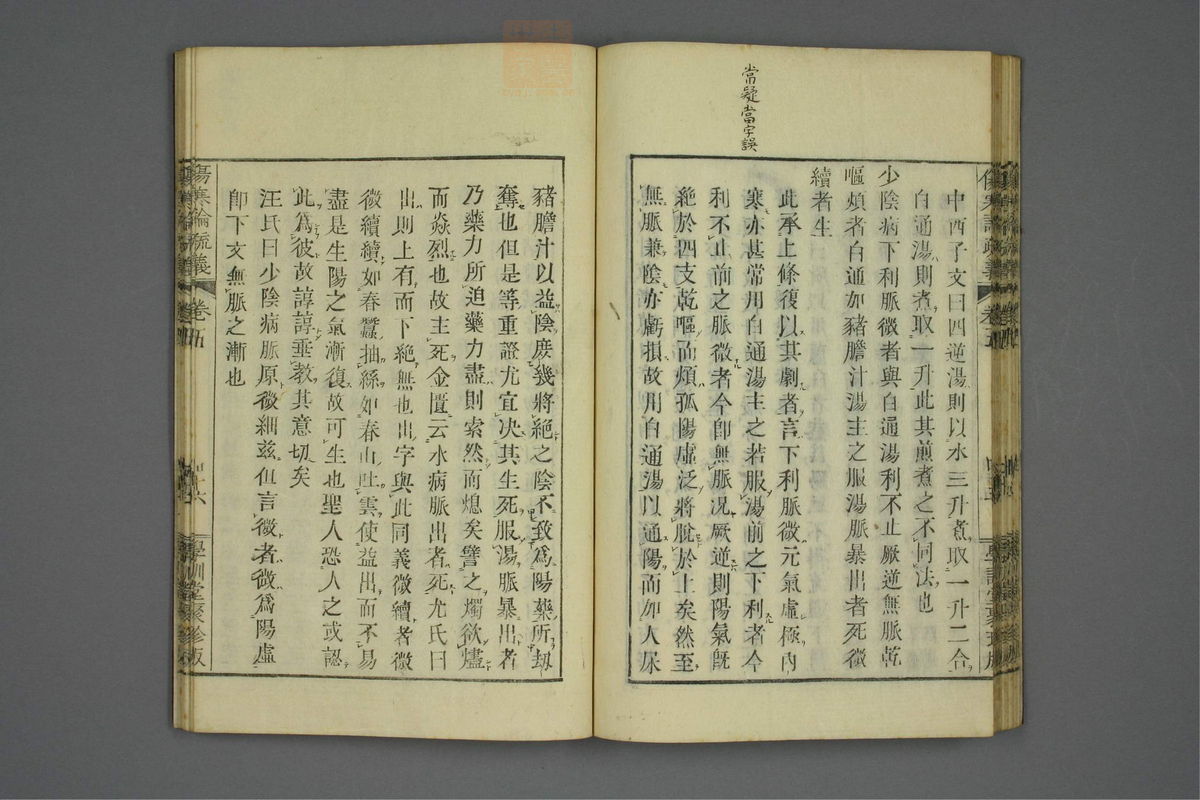 常疑當字誤
中西子文曰四逆湯則以水三升煮取一升二合
白通湯則煮取一升此其煎煮之不同法也
少陰病下利脈微者與白通湯利不止厥逆無脈乾
嘔煩者白通加豬膽汁湯主之服湯脈暴出者死微
續者生
此承上條復以其劇者言下利脈微元氣虛極內
寒亦甚常用白通湯主之若服湯前之下利者今
利不止前之脈微者今卽無脈况厥逆則陽氣旣
絶於四支乾嘔而煩孤陽虛泛將脫於上矣然至
無脈兼陰亦虧損故用白通湯以通陽而加人尿
豬膽汁以益陰庶幾將絶之陰不致爲陽藥所劫
奪也但是等重證尤宜决其生死服湯脈暴出者
乃藥力所迫藥力盡則索然而熄矣譬之燭欲燼
而焱烈也故主死金匱云水病脈出者死尤氏曰
出則上有而下絶無也出字與此同義微續者微
微續續如春蠶抽絲如春山吐雲使益出而不易
盡是生陽之氣漸復故可生也聖人恐人之或認
此爲彼故諄諄垂教其意切矣
汪氏曰少陰病脈原微細兹但言微者微爲陽虛
卽下文無脈之漸也
傷寒論疏義
卷五
學訓堂聚珍版